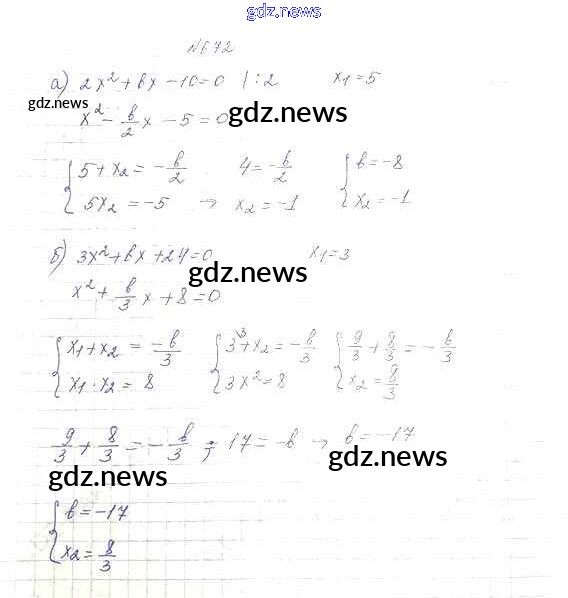 gdz.news
№672
а) 2x² + bx - 10 = 0 | :2 x₁ = 5
gdz.news
x² - b/2 x - 5 = 0
gdz.news
{ 5 + x₂ = -b/2 4 = -b/2 { b = -8
{ 5x₂ = -5 → x₂ = -1 { x₂ = -1
б) 3x² + bx + 24 = 0 x₁ = 3
gdz.news
x² + b/3 x + 8 = 0
{ x₁ + x₂ = -b/3 { 3 + x₂ = -b/3 { 9/3 + 8/3 = -b/3
{ x₁ · x₂ = 8 { 3x² = 8 { x₂ = 8/3
9/3 + 8/3 = -b/3 ; 17 = -b → b = -17
gdz.news
gdz.news
{ b = -17
{ x₂ = 8/3